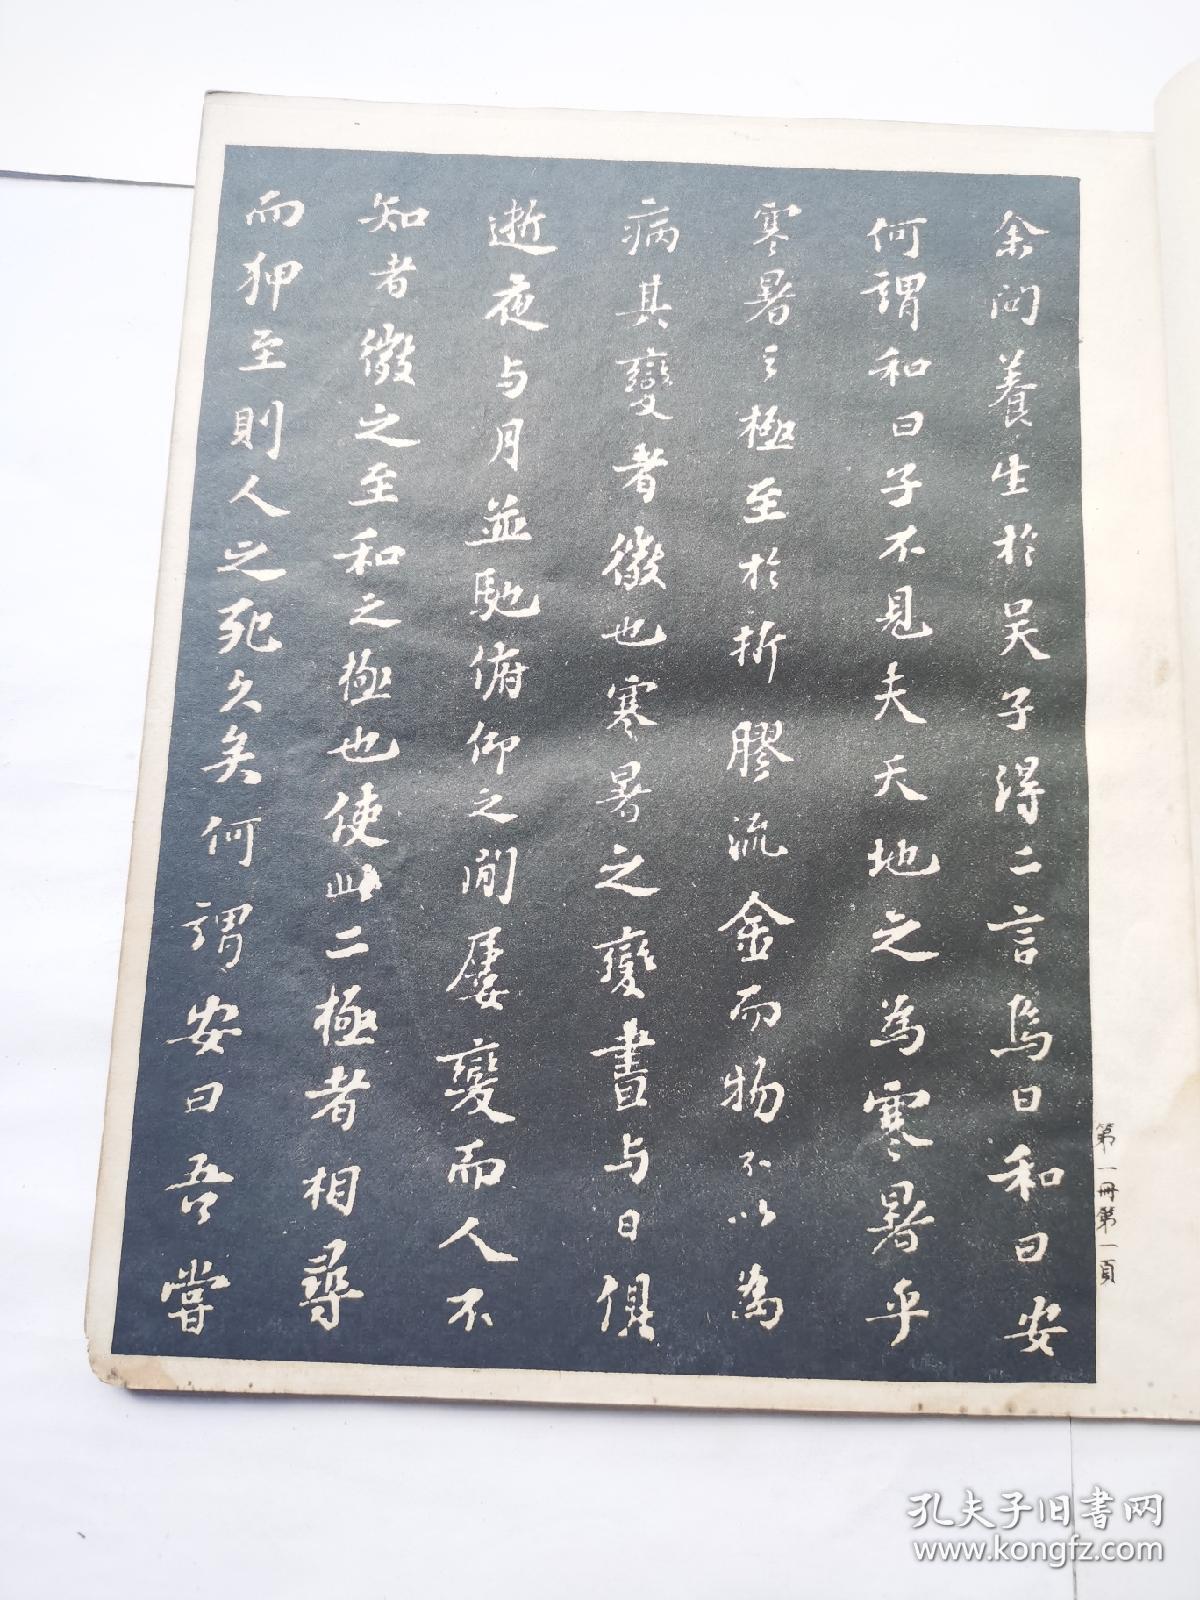 余問養生於吴子得二言焉曰和曰安
何謂和曰子不見夫天地之為寒暑乎
寒暑之極至於折膠流金而物不以為
病其變者微也寒暑之變晝與日俱
逝夜与月並馳俯仰之間屢變而人不
知者微之至和之極也使此二極者相尋
而狎至則人之死久矣何謂安曰吾嘗
第一冊第一頁
孔夫子旧书网
www.kongfz.com